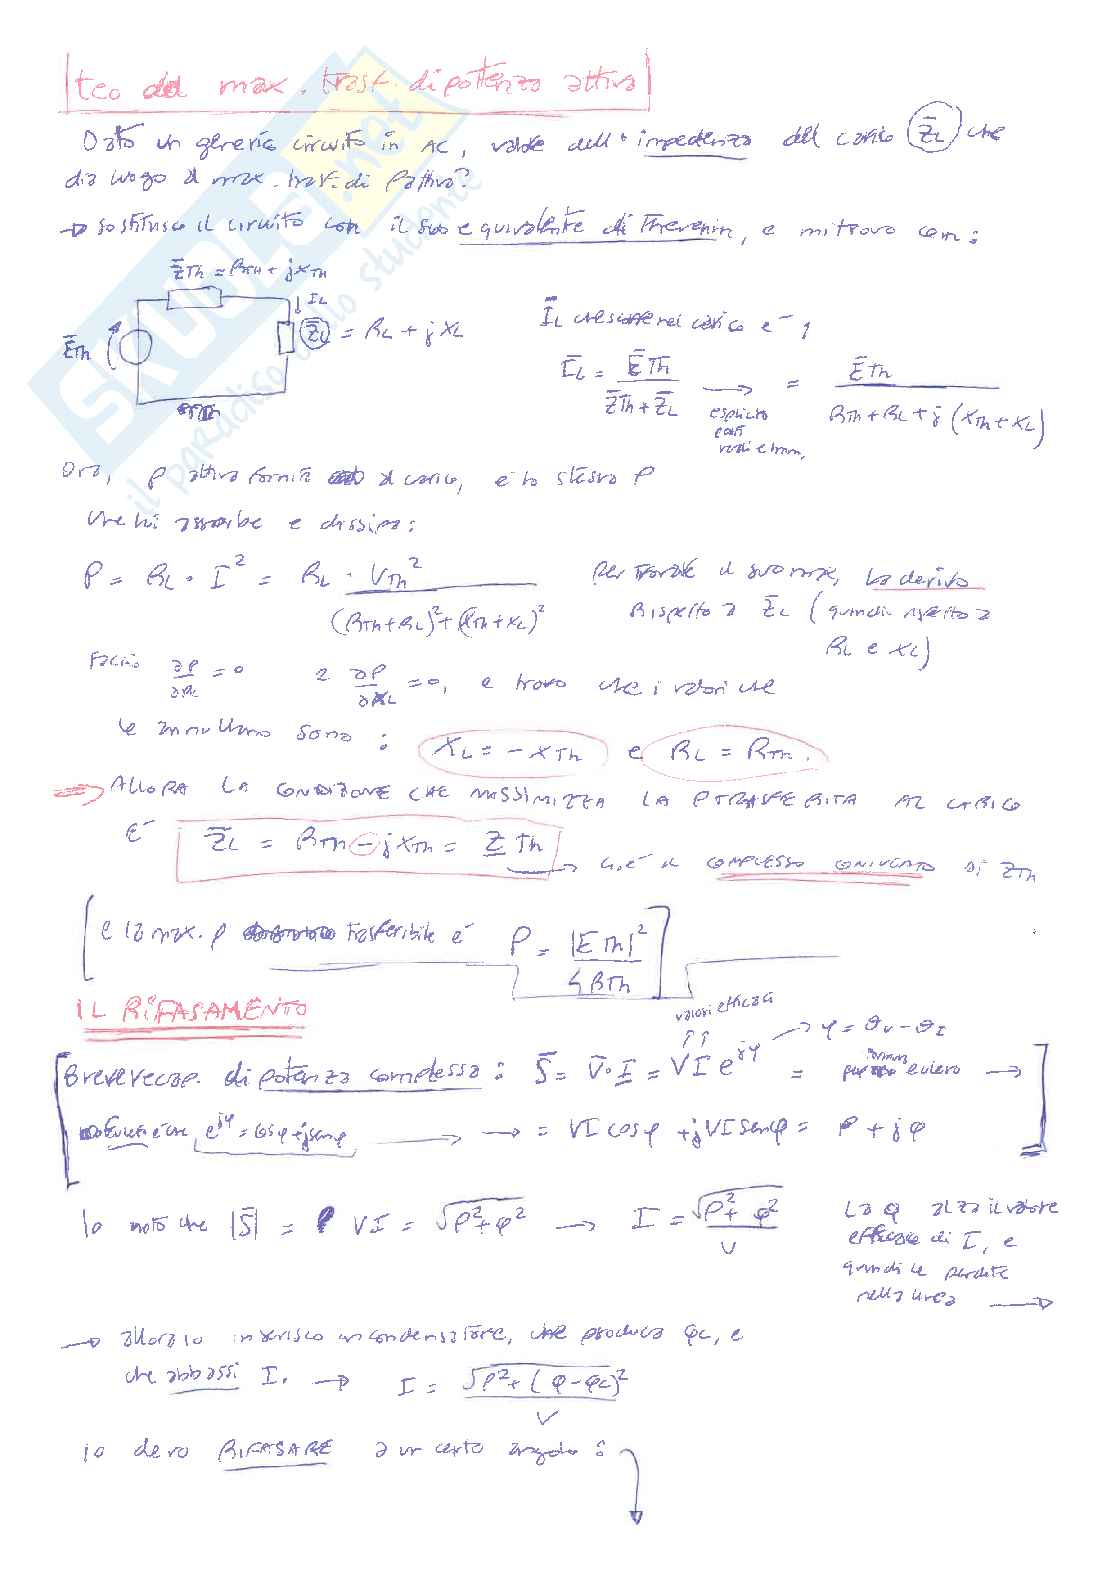 teo del max. trasf. di potenza attiva
Dato un generico circuito in AC, valore dell' impedenza del carico (Z̄L) che
dia luogo al max. trasf. di Pattiva?
→ Sostituisco il circuito con il suo equivalente di Thevenin, e mi trovo com:
Z̄Th = RTh + jXTh
IL
ĒTh
Z̄L = RL + jXL
ĪL che scorre nel carico è,
ĪL = ĒTh / (Z̄Th + Z̄L) → = ĒTh / (RTh + RL + j(XTh + XL))
esplicito
parti
reali e imm.
Ora, P attiva fornita al carico, è la stessa P
che lui assorbe e dissipa:
P = RL · I² = RL · VTh² / ((RTh+RL)² + (XTh+XL)²)
per trovare il suo max, la derivo
Rispetto a Z̄L (quindi rispetto a
RL e XL)
Faccio ∂P/∂RL = 0 e ∂P/∂XL = 0, e trovo che i valori che
le annullano sono: XL = -XTh e RL = RTh.
⇒ ALLORA LA CONDIZIONE CHE MASSIMIZZA LA P TRASFERITA AL CARICO
E' Z̄L = RTh - jXTh = Z̲Th → cioè il COMPLESSO CONIUGATO DI ZTh
e la max. P trasferibile è P = |ETh|² / 4RTh
IL RIFASAMENTO
valori efficaci
Breve recap. di potenza complessa: S̄ = V̄·I̲ = VI e^jφ = → φ = θv - θI
eulero →
e^jφ = cosφ + jsenφ → → = VI cosφ + jVI senφ = P + jQ
Io noto che |S̄| = VI = √(P²+Q²) → I = √(P²+Q²) / V
La Q alza il valore
efficace di I, e
quindi le perdite
nella linea →
→ allora io inserisco un condensatore, che produca Qc, e
che abbassi I. → I = √(P²+(Q-Qc)²) / V
Io devo RIFASARE a un certo angolo:
SKUOLA.net
il paradiso dello studente